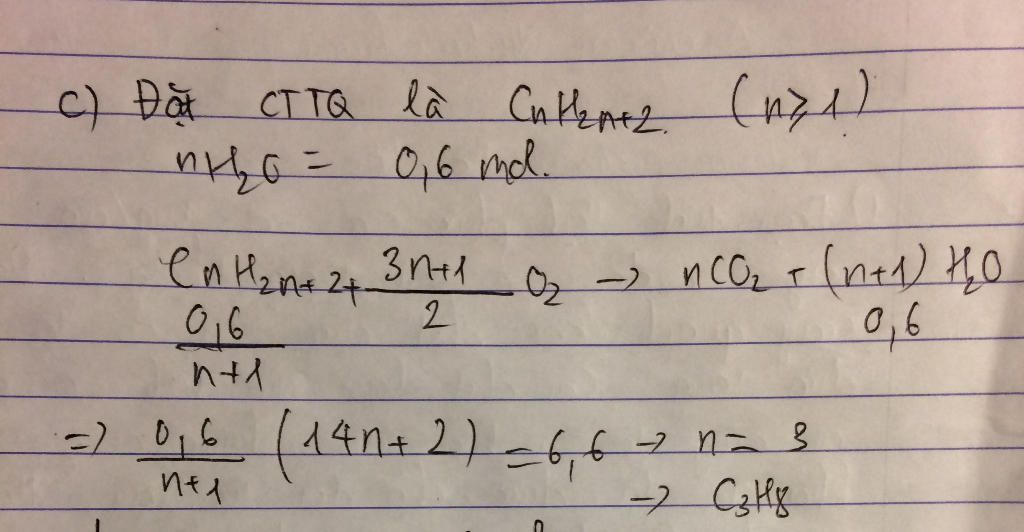 c) Đặt CTTQ là CnH2n+2. (n ≥ 1)
nH2O = 0,6 mol.
CnH2n+2 + (3n+1)/2 O2 → nCO2 + (n+1) H2O
0,6/(n+1) 0,6
=> 0,6/(n+1) (14n + 2) = 6,6 → n = 3
→ C3H8